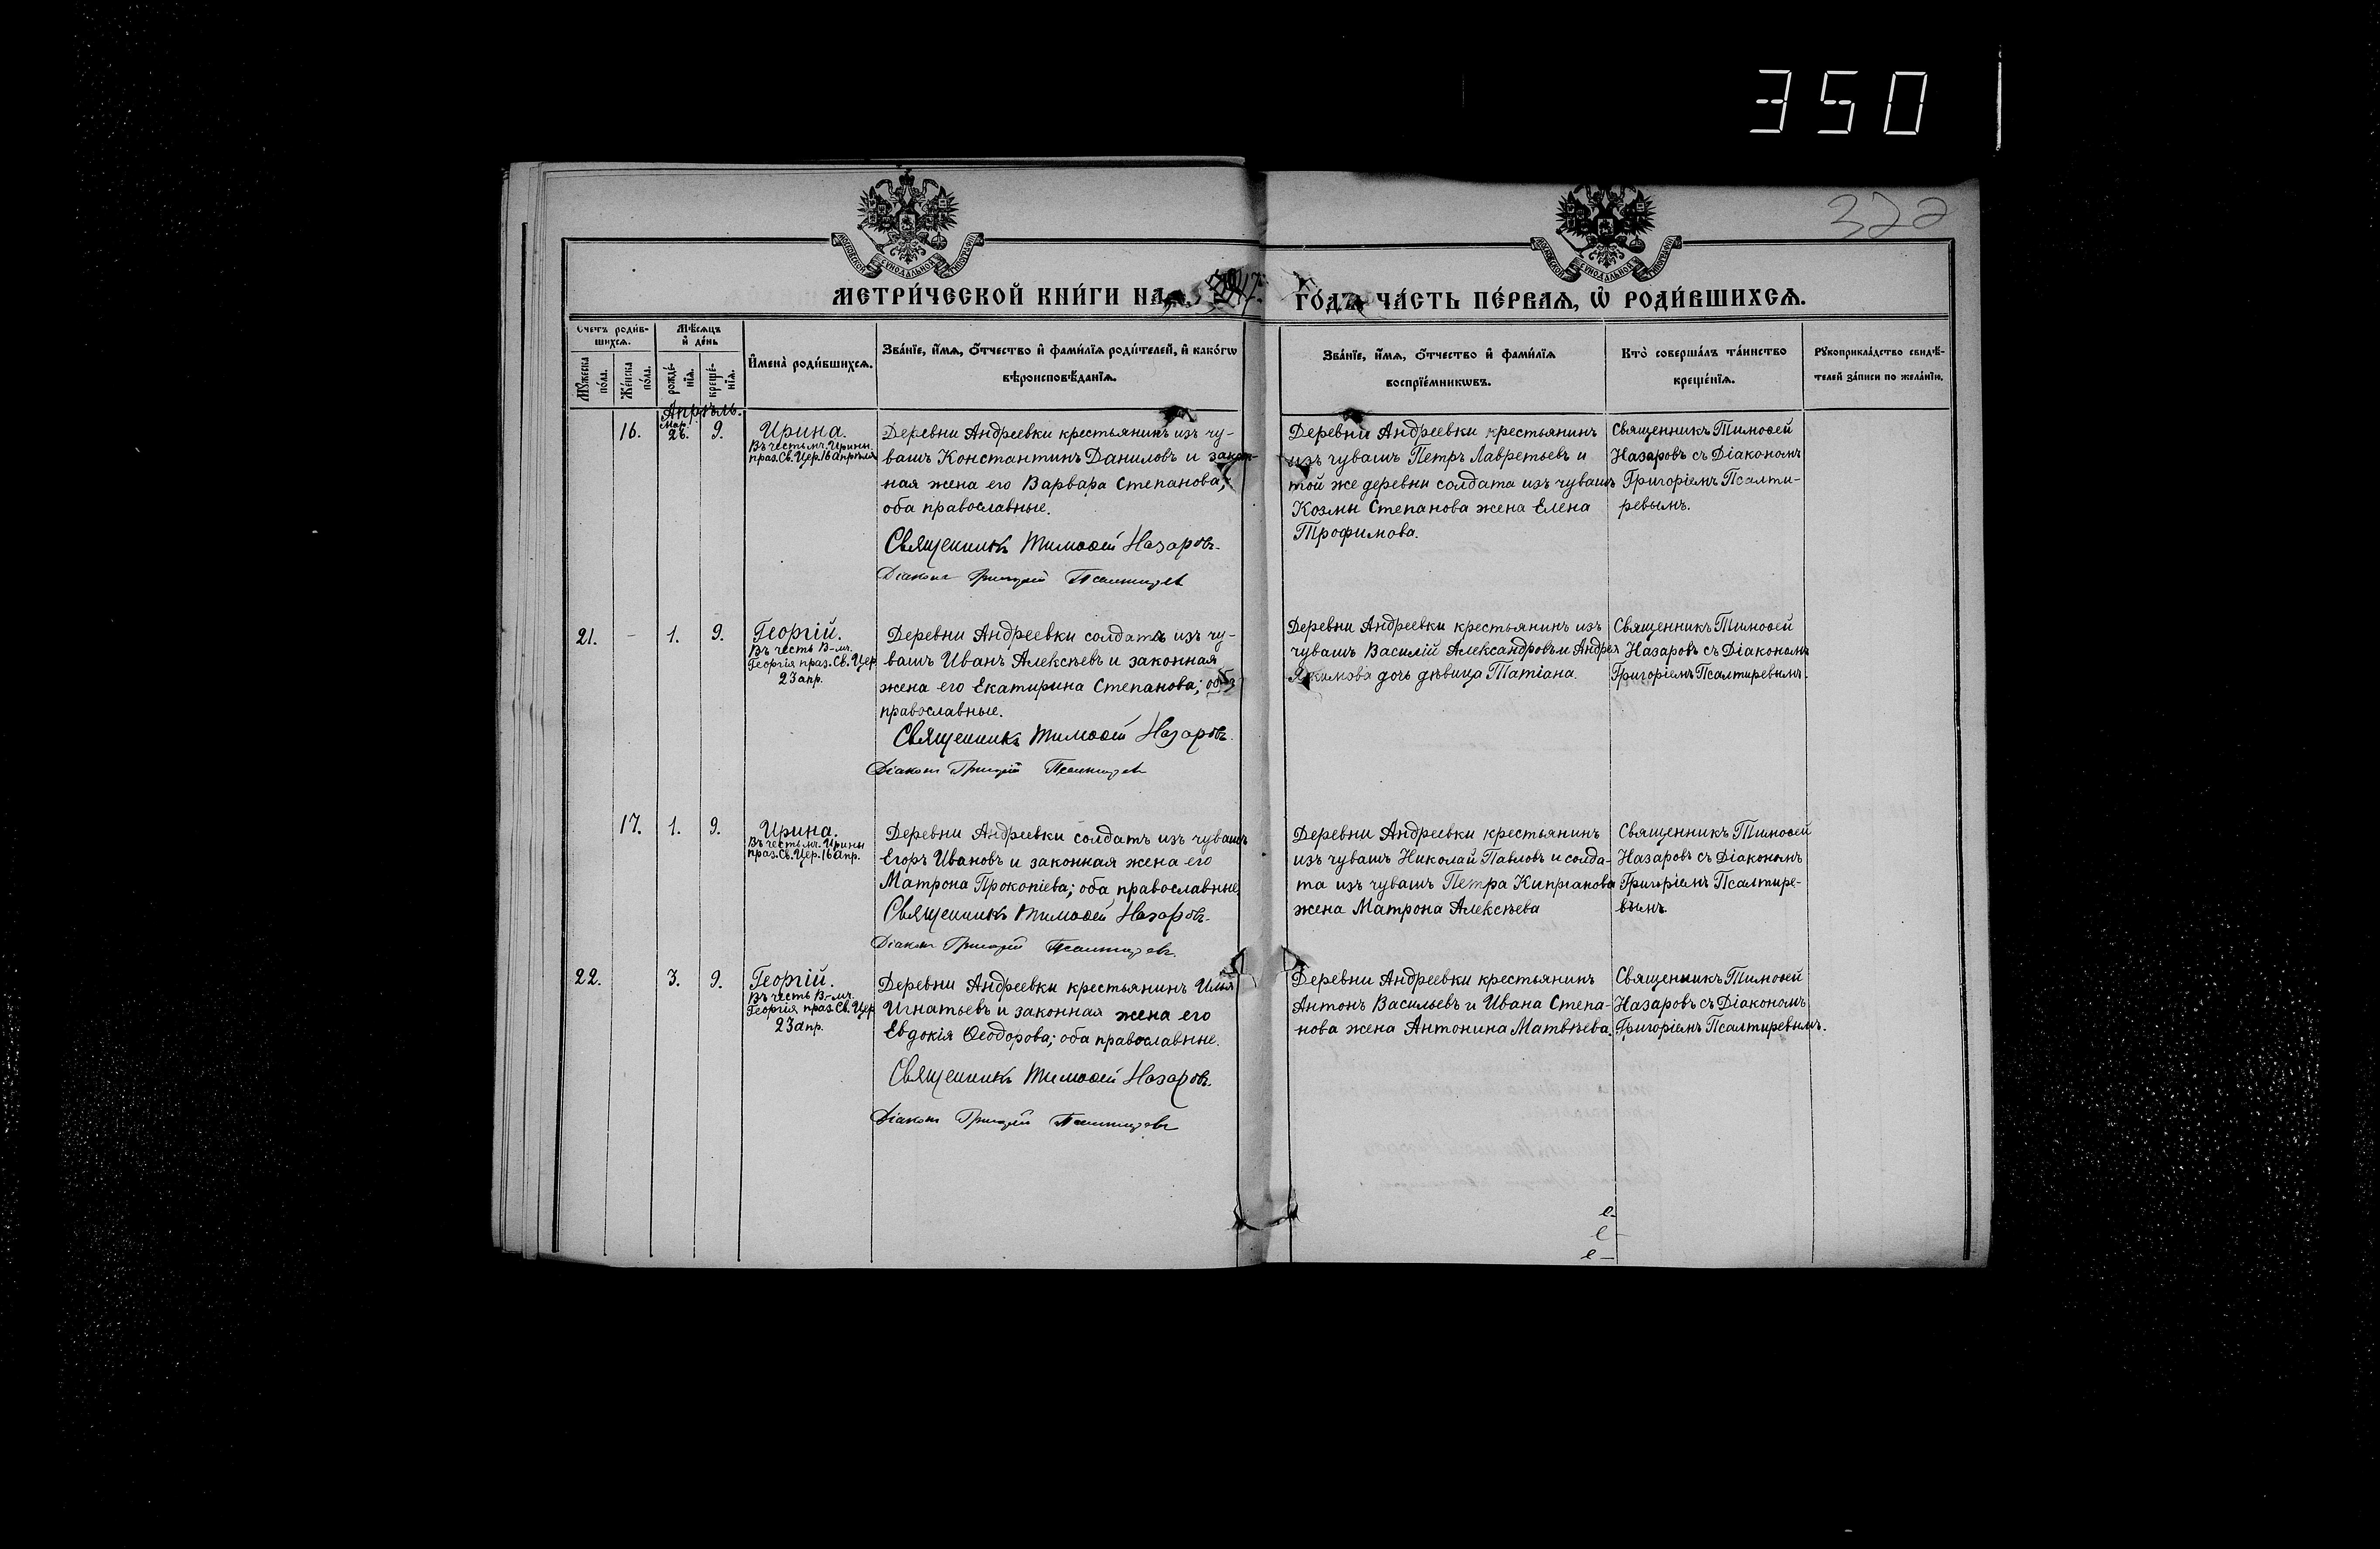 350
322
МОСКОВСКОЙ СѴНОДАЛЬНОЙ ТИПОГРАФІИ
МОСКОВСКОЙ СѴНОДАЛЬНОЙ ТИПОГРАФІИ
МЕТРИ́ЧЕСКОЙ КНИ́ГИ НА
ГО́ДЪ ЧА́СТЬ ПЕ́РВАѦ, Ѡ҆ РОДИ́ВШИХСѦ.
Счетъ роди́в-
шихсѧ.
Мѣ́сѧцъ
и҆ де́нь
Мꙋ́жеска
по́ла.
Же́нска
по́ла.
рожде́-
нїѧ.
креще́-
нїѧ.
И҆мена̀ роди́вшихсѧ.
Зва́нїе, и҆́мѧ, ѻ҆́тчество и҆ фами́лїѧ роди́телей, и҆ како́гѡ
вѣроисповѣ́данїѧ.
Зва́нїе, и҆́мѧ, ѻ҆́тчество и҆ фами́лїѧ
воспрїе́мникѡвъ.
Кто̀ соверша́лъ та́инство
креще́нїѧ.
Рꙋкоприкла́дство свидѣ́-
телей за́писи по жела́нїю.
Апрѣль.
16.
Мар.
26.
9.
Ирина.
Въ честь мч. Ирины
праз. Св. Цер. 16 апрѣля
Деревни Андреевки крестьянинъ изъ чу-
вашъ Константинъ Даниловъ и закон-
ная жена его Варвара Степанова,
оба православные.
Священникъ Тимоѳей Назаровъ.
Діаконъ Григорій Псалтиревъ
Деревни Андреевки крестьянинъ
изъ чувашъ Петръ Лаврентьевъ и
той же деревни солдата изъ чувашъ
Козмы Степанова жена Елена
Трофимова.
Священникъ Тимоѳей
Назаровъ съ Діакономъ
Григоріемъ Псалти-
ревымъ.
21.
-
1.
9.
Георгій.
Въ честь В-мч.
Георгія праз. Св. Цер
23 апр.
Деревни Андреевки солдатъ изъ чу-
вашъ Иванъ Алексѣевъ и законная
жена его Екатирина Степанова; оба
православные.
Священникъ Тимоѳей Назаровъ.
Діаконъ Григорій Псалтиревъ
Деревни Андреевки крестьянинъ изъ
чувашъ Василій Александровъ и Андрея
Якимова дочь дѣвица Татіана.
Священникъ Тимоѳей
Назаровъ съ Діакономъ
Григоріемъ Псалтиревымъ.
17.
1.
9.
Ирина.
Въ честь мч. Ирины
праз. Св. Цер. 16 апр.
Деревни Андреевки солдатъ изъ чувашъ
Егоръ Ивановъ и законная жена его
Матрона Прокопіева; оба православные
Священникъ Тимоѳей Назаровъ.
Діаконъ Григорій Псалтиревъ.
Деревни Андреевки крестьянинъ
изъ чувашъ Николай Павловъ и солда-
та изъ чувашъ Петра Кипріанова
жена Матрона Алексѣева
Священникъ Тимоѳей
Назаровъ съ Діакономъ
Григоріемъ Псалтире-
вымъ.
22.
3.
9.
Георгій.
Въ честь В-мч.
Георгія праз. Св. Цер
23 апр.
Деревни Андреевки крестьянинъ Илья
Игнатьевъ и законная жена его
Евдокія Ѳеодорова; оба православные.
Священникъ Тимоѳей Назаровъ.
Діаконъ Григорій Псалтиревъ
Деревни Андреевки крестьянинъ
Антонъ Васильевъ и Ивана Степа-
нова жена Антонина Матвѣева.
Священникъ Тимоѳей
Назаровъ съ Діакономъ
Григоріемъ Псалтиревымъ.